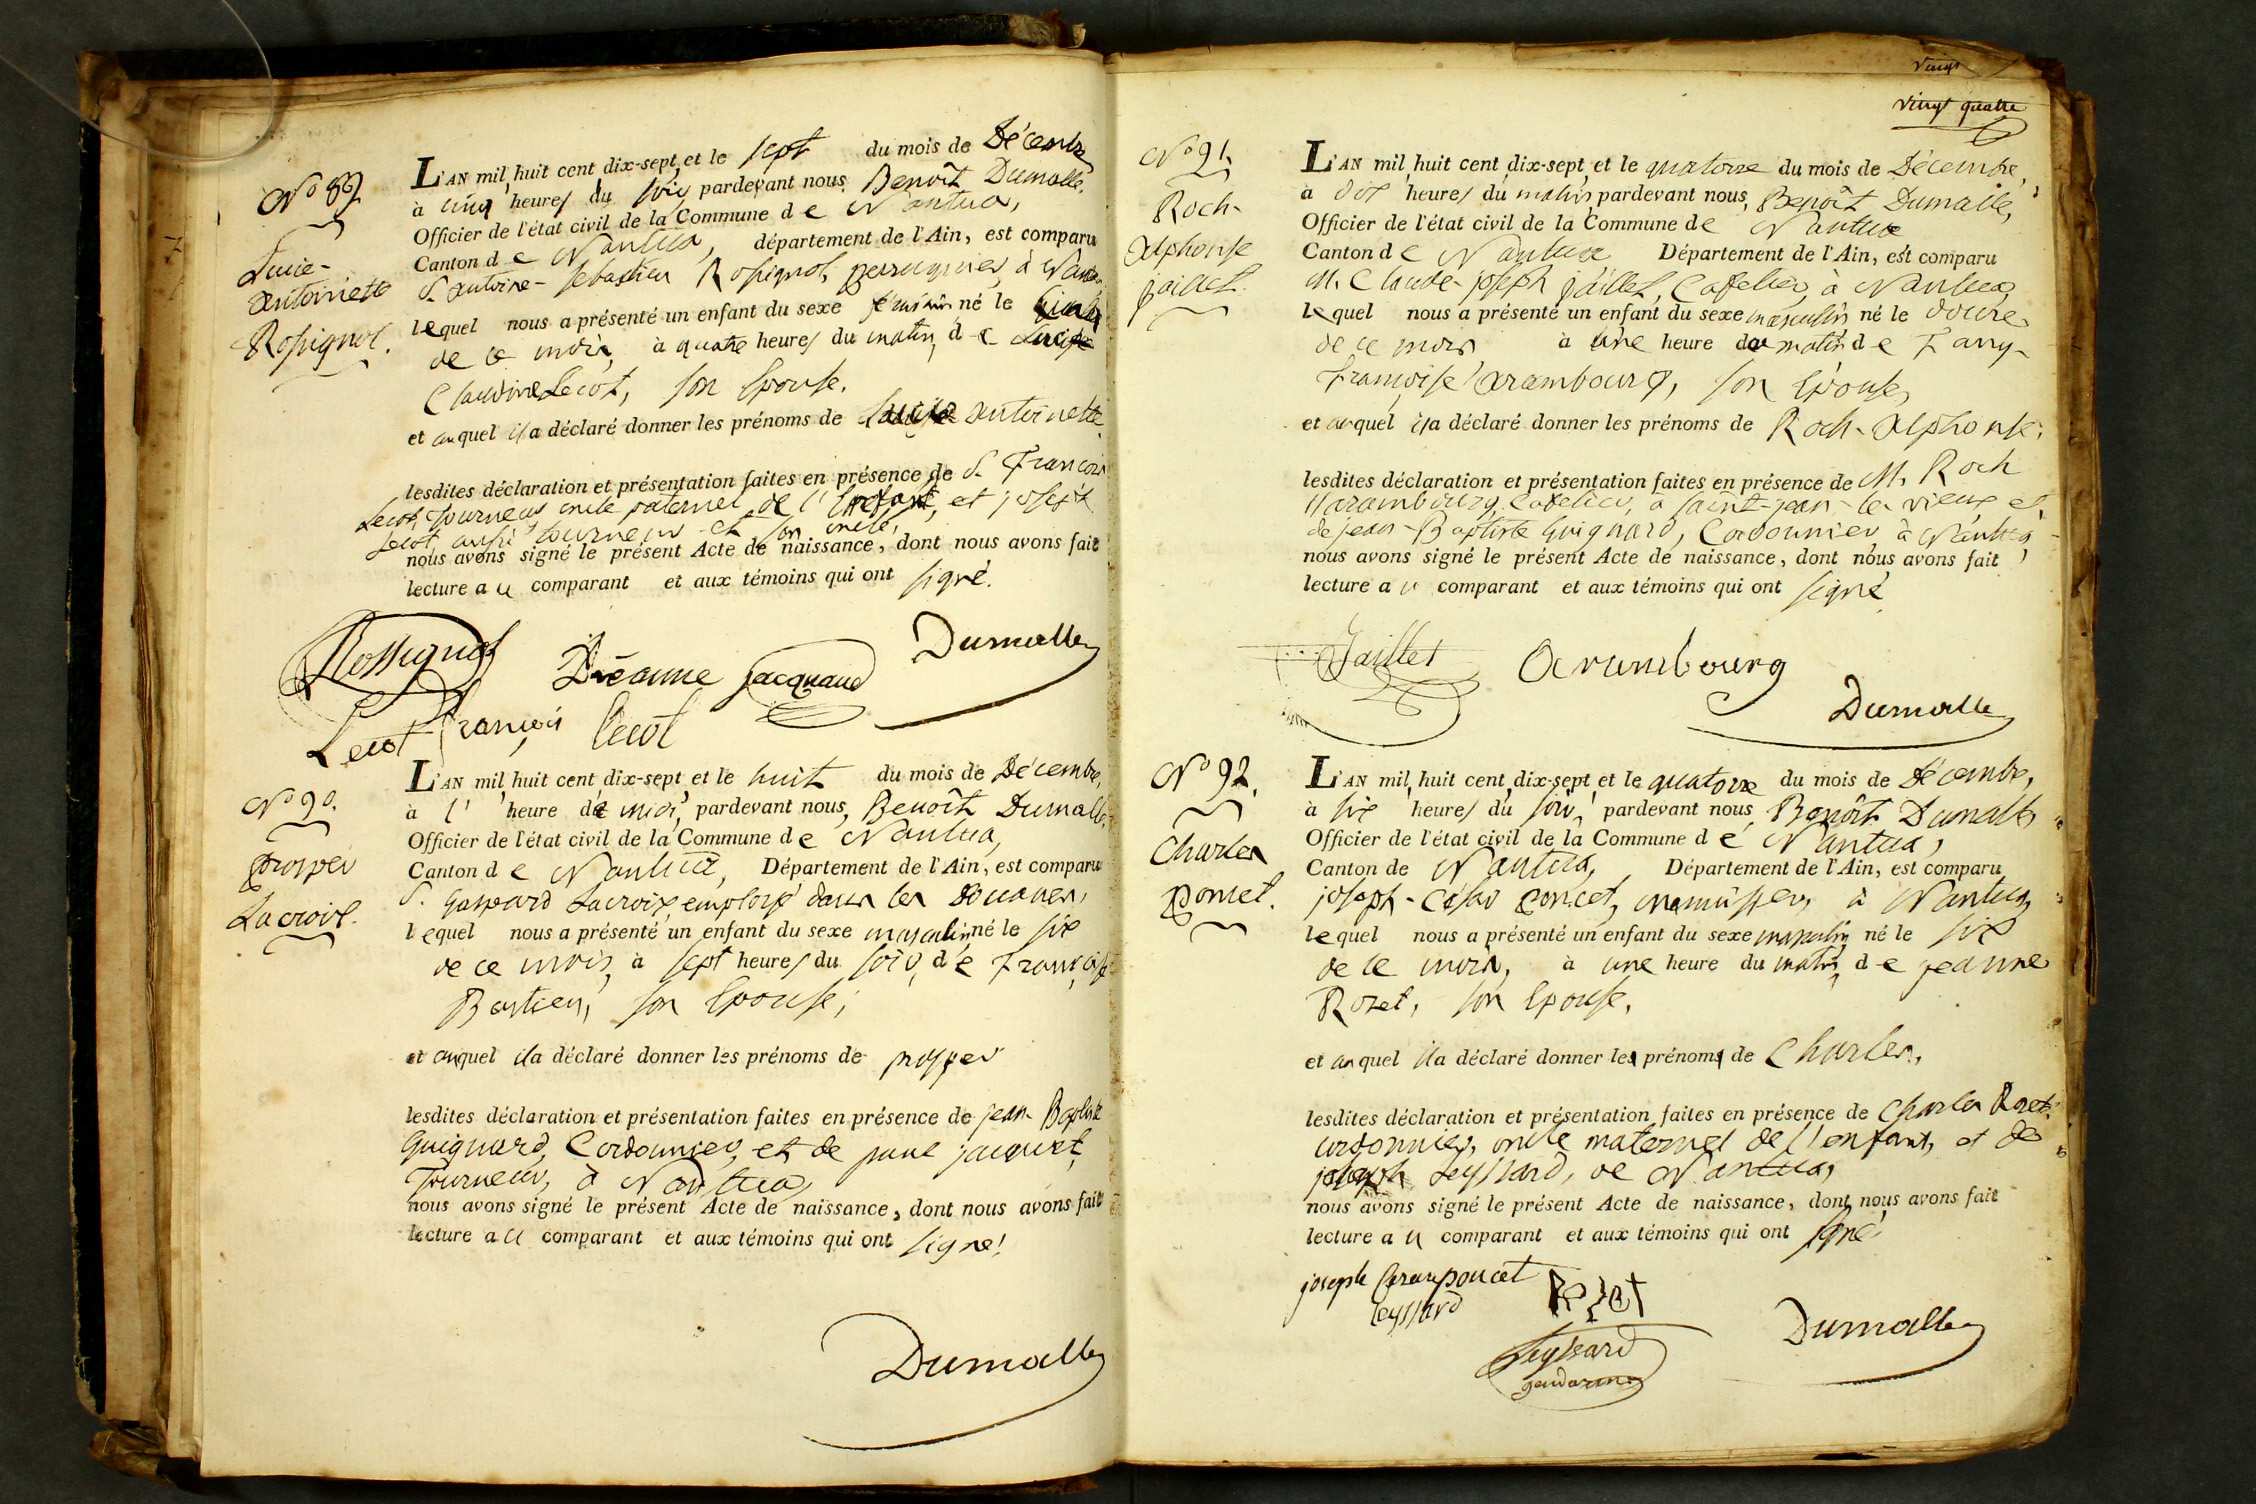 N° 89.
Lucie-
antoinette
Rossignol.
L'AN mil huit cent dix-sept, et le sept du mois de Décembre
à cinq heures du soir pardevant nous Benoît Dumalle,
Officier de l'état civil de la Commune de Nantua,
Canton de Nantua, département de l'Ain, est comparu
S. antoine-sebastien Rossignol, perruquier, à Nantua
lequel nous a présenté un enfant du sexe féminin né le
de ce mois, à quatre heures du matin, de
Claudine Lecot, son Epouse.
et auquel il a déclaré donner les prénoms de antoinette
lesdites déclaration et présentation faites en présence de S. François
Lecot, Tourneur oncle paternel de l'Enfant, et joseph
Lecot, aussi tourneur et son oncle,
nous avons signé le présent Acte de naissance, dont nous avons fait
lecture au comparant et aux témoins qui ont signé.
Rossignol Dréanne Jacquand Dumalle
Lecot François Lecot
N° 90.
prosper
Lacroix.
L'AN mil huit cent dix-sept, et le huit du mois de Décembre,
à l' heure de midi, pardevant nous, Benoît Dumalle,
Officier de l'état civil de la Commune de Nantua,
Canton de Nantua, Département de l'Ain, est comparu
S. Gaspard Lacroix, employé dans les Douanes,
lequel nous a présenté un enfant du sexe masculin né le six
de ce mois, à sept heures du soir, de Françoise
Bastien, son Epouse,
et auquel il a déclaré donner les prénoms de prosper
lesdites déclaration et présentation faites en présence de jean-Baptiste
Guignard, Cordonnier, et de paul jacquet,
Tourneur, à Nantua,
nous avons signé le présent Acte de naissance, dont nous avons fait
lecture au comparant et aux témoins qui ont signé!
Dumalle
vingt
vingt quatre
N° 91.
Roch-
alphonse
jaillet.
L'AN mil huit cent dix-sept, et le quatorze du mois de Décembre,
à dix heures du matin pardevant nous, Benoît Dumalle,
Officier de l'état civil de la Commune de Nantua
Canton de Nantua Département de l'Ain, est comparu
M. Claude-joseph jaillet, Cafetier, à Nantua,
lequel nous a présenté un enfant du sexe masculin né le douze
de ce mois à une heure du matin de Fany-
Françoise arambourg, son Epouse,
et auquel il a déclaré donner les prénoms de Roch-alphonse.
lesdites déclaration et présentation faites en présence de M. Roch
Harambourg, Cafetier, à saint-jean-le-vieux et
de jean-Baptiste Guignard, Cordonnier à Nantua
nous avons signé le présent Acte de naissance, dont nous avons fait
lecture au comparant et aux témoins qui ont signé
Jaillet Arambourg
Dumalle
N° 92.
Charles
poncet.
L'AN mil huit cent dix-sept et le quatorze du mois de Décembre,
à six heures du soir, pardevant nous Benoît Dumalle
Officier de l'état civil de la Commune de Nantua,
Canton de Nantua, Département de l'Ain, est comparu
joseph-César poncet, menuisier, à Nantua,
lequel nous a présenté un enfant du sexe masculin né le six
de ce mois, à une heure du matin, de jeanne
Rozet, son Epouse.
et auquel il a déclaré donner les prénoms de Charles.
lesdites déclaration et présentation faites en présence de Charles Rozet,
cordonnier, oncle maternel de l'enfant, et de
joseph Leyssard, de Nantua,
nous avons signé le présent Acte de naissance, dont nous avons fait
lecture au comparant et aux témoins qui ont signé
joseph Cezar poncet Rozet
leyssard
Dumalle
Leyssard
gendarme